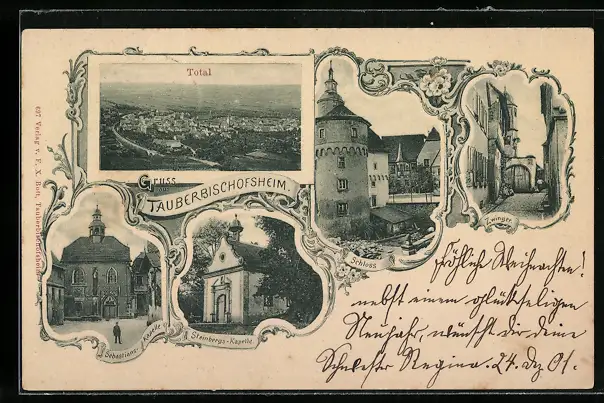 Total
Gruss aus
TAUBERBISCHOFSHEIM.
Schloss
Zwinger.
Sebastians-Kapelle
Steinbergs-Kapelle
697 Verlag v. F. X. Bott, Tauberbischofsheim
Fröhliche Weihnachten!
nebst einem glückseligen
Neujahr, wünscht Dir deine
Schwester Regina. 24. Dz 01.